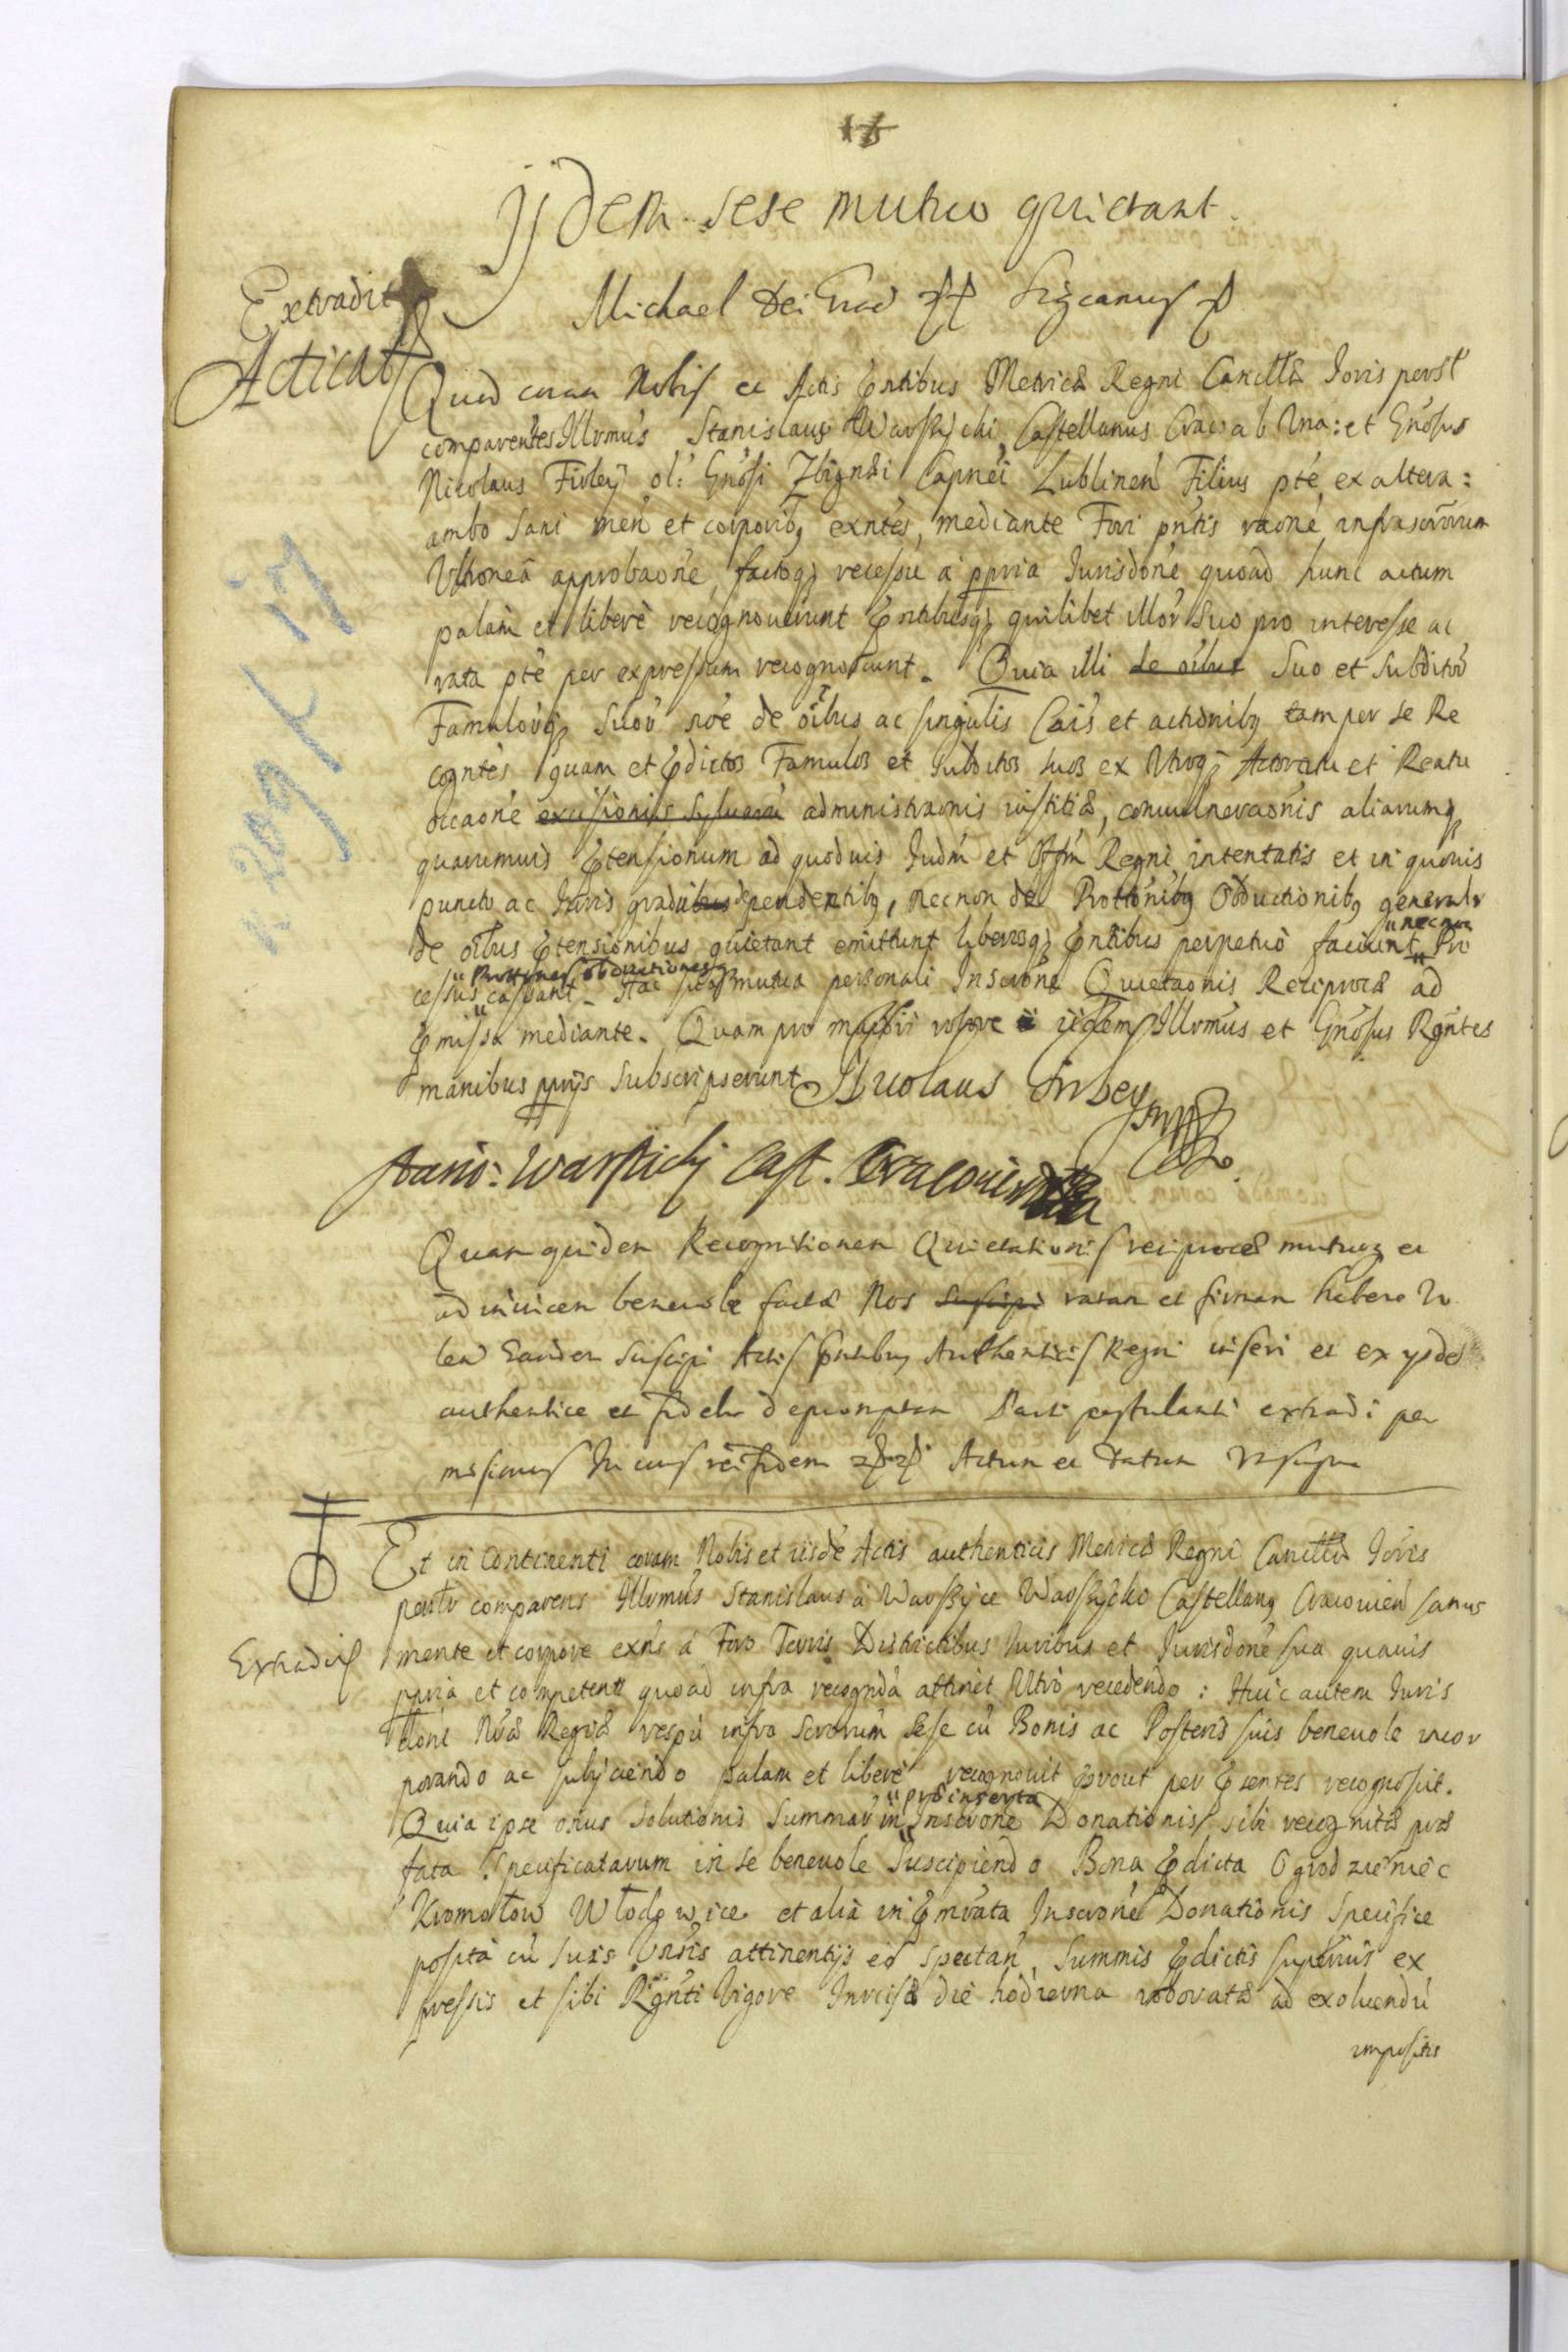 Ijdem sese mutuo quietant.
Extradit
Michael Dei Gra
Acticat
Quod coram Nobis et Actis Pntibus Metricæ Regni Cancellæ Joris perslr
comparentes Illrmus Stanislaus Warszycki Castellanus Crac: ab Una: et Gnosus
Nicolaus Firley ol: Gnosi Zbignei Capnei Lublinen Filius pte ex altera:
ambo sani men et corporibq exntes, mediante Fori pntis raone infrascrorum
approbaone, factoq recessu à ppria Jurisdone quoad hunc actum
palàm et liberè recognoverunt Pntibusq quilibet illor suo pro interesse ac
rata pte per expressum recognoscunt. Quia illi de oibus Suo et Subditor
Famulorq suor noe de oibus ac singulis Cais et actionibq tam per se Re
cogntes quam et Pdictos Famulos et Subditos suos ex Utroq Actoratu et Reatu
occaone excisionis syluaru administraonis iustitiæ, convulneraonis aliarumq
quarumvis Ptensionum ad quoduis Judm et Offm Regni intentatis et in quovis
puncto ac Juris gradibus dependentibq, necnon de Prottonibq Obductionibq generalr
de oibus Ptensionibus quietant emittunt liberosq Pntibus perpetuò faciunt necnon Pro
cessus Prottnes obductionesq cassant. Hac sua mutua personali Inscrone Quietaonis Reciprocæ ad
Pmissa mediante. Quam pro maiori robore iidem Illrmus et Gnosus Rgntes
manibus pprijs subscripserunt. Nicolaus Firley mpp
Stanis: Warszicki Cast. Cracovien
Quam quidem Recognitionem Quietationis reciprocæ mutuæ et
ad invicem benevole factæ Nos suscipi ratam et firmam habere Vo
len Eandem Suscipi Actis Pntibus Authenticis Regni inseri et ex ysdem
authentice et fidelr depromptam Parti postulanti extradi per
misimus In cuius rei fidem Actum et Datum Ut supra
Et in continenti coram Nobis et iisde Actis authenticis Metricæ Regni Cancellæ Joris
perslr comparens Illrmus Stanislaus à Warszyce Warszycki Castellanq Cracovien sanus
Extradit
mente et corpore exns à Foro Terris Districtibus Juribus et Jurisdone sua quavis
ppria et competenti quoad infra recognda attinet Ultrò recedendo: Huic autem Juris
dioni Nræ Regiæ respu infra scrorum sese cu Bonis ac Posteris suis benevole incor
porando ac subijciendo palam et liberè recognovit Prout per Psentes recognoscit.
Quia ipse onus solutionis summar in præinserta Inscrone Donationis sibi recognitæ præ
fata specificatarum in se benevole Suscipiendo Bona Pdicta Ogrodzieniec
Kromołow Włodowice et alia in Pmrata Inscrone Donationis Specifice
posita cu suis Unsis attinentijs eo spectan, Summis Pdictis superius ex
pressis et sibi Rgnti vigore Inscris die hodierna roboratæ ad exoluendu
impositis